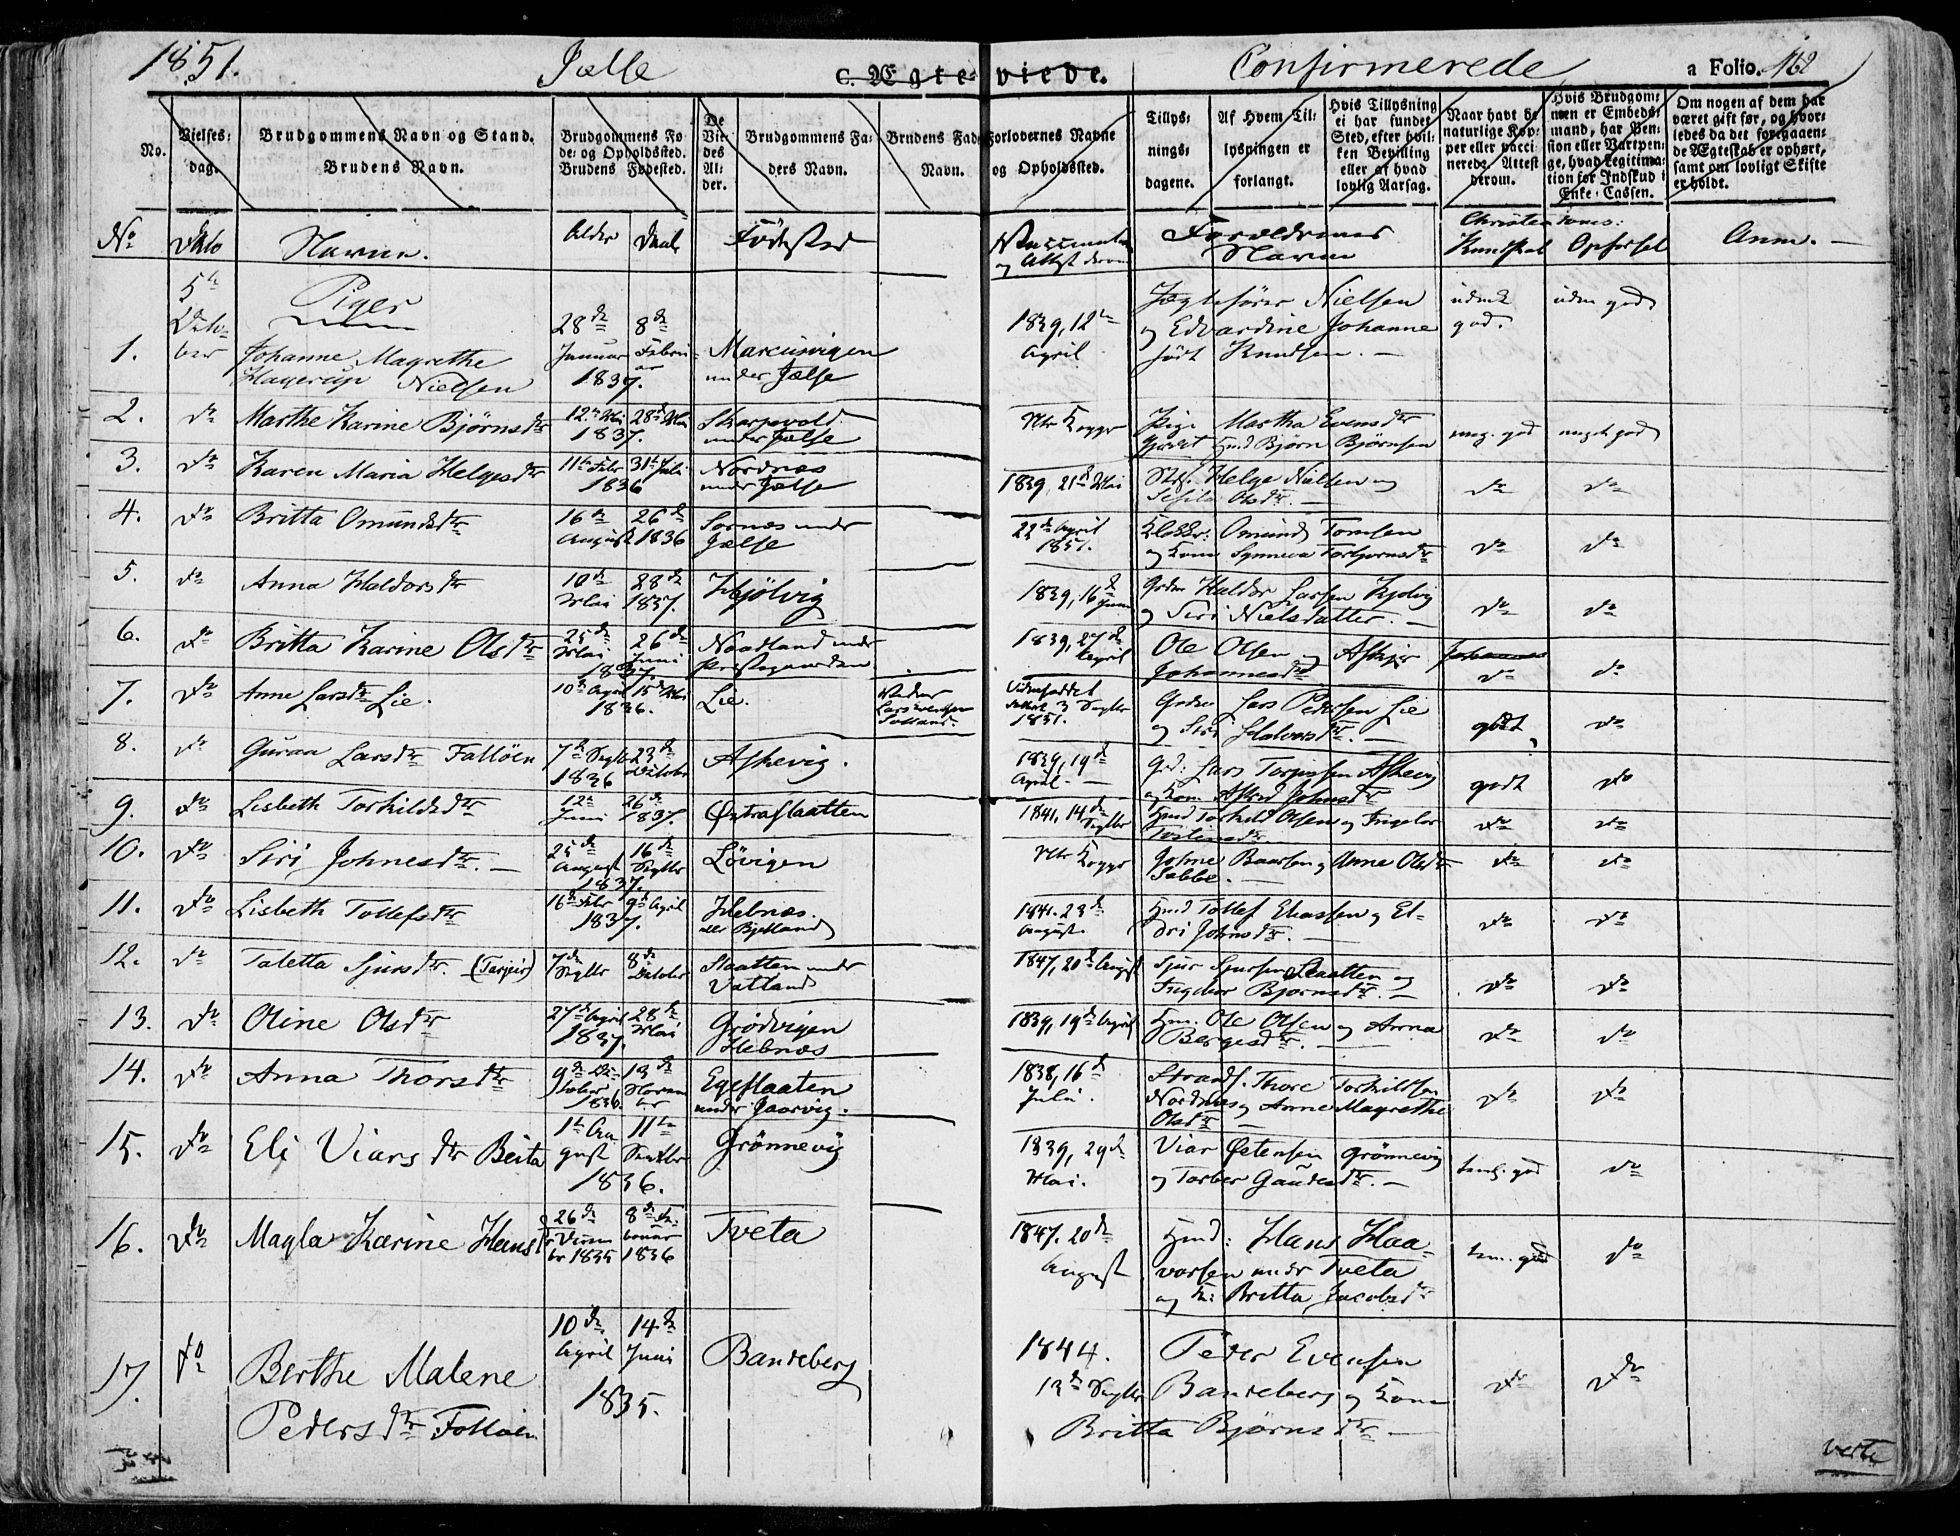 1851. Jælse c. Ægteviede. Confirmerede a Folio. 162
No.
Vielses:
dag.
Brudgommens Navn og Stand.
Brudens Navn.
Brudgommens Fø
de: og Opholdssted.
Brudens Fødested.
De
Vie
des
Al:
der.
Brudgommens Fa:
ders Navn.
Brudens Fad
Navn.
Forlovernes Navne
og Opholdssted.
Tillys:
nings:
dagene.
Af Hvem Til:
lysningen er
forlangt.
Hvis Tillysning
ei har fundet
Sted, efter hvil:
ken Bevilling
eller af hvad
lovlig Aarsag.
Naar havt de
naturlige Kop:
per eller vacci
nerede, Attest
derom.
Hvis Brudgom:
men er Embeds:
mand, har Pen:
sion eller Vartpen:
ge, hvad Legitima:
tion for Indskud i
Enke: Cassen.
Om nogen af dem har
været gift før, og hvor:
ledes da det foregaaen:
de Ægteskab er ophørt,
samt om lovligt Skifte
er holdt.
No Dato Navne. Alder Daab Fødested
Vaccination
og Attest derom
Forældrenes
Navne
Christendoms:
Kundskab Opførsel Anm.
5te
Octo-
ber
Piger
1. Johanne Magrethe
Hagerup Nielsen
28de Januar 8de Februar
1837.
Marcusvigen
under Jælse
1839, 12te
April
Jægtefører Nielsen
og Edvardine Johanne
født Knudsen.
god. god
2. do Marthe Karine Bjørnsdtr 12te Mai 28de Mai
1837.
Skarpevold
under Jælse
Ntr Kopper
Pige Martha Evensdtr
Bjørn Bjørnsen
meg. god meget god
3. do Karen Maria Helgesdtr 11te Febr 31te Juli
1836
Nordnæs
under Jælse
1839, 21de Mai
Helge Nielsen og
Olsdtr.
do do
4. do Britta Omundsdtr
16de 26de
August 1836
Sornæs under
Jælse
22de April
1851.
Klokker: Omund Tomsen
og Kone Synneva Torbjørnsdtr
do do
5. do Anna Haldorsdtr
10de 28de
Mai 1837.
Hjølvig
1839, 16de
Juni
Haldor Larsen Hjølvig
og Siri Nielsdatter.
do do
6. do Britta Karine Olsdtr
25de Mai 26de Juni
1837.
Nordland under
Præstegaarden
1839, 27de
April
Ole Olsen og
Johannesdtr
do do
7. do Anne Larsdtr Lie.
10de April 15de Mai
1836.
Lie.
1851.
Lars Pedersen Lie
og Siri Halvorsdtr.
godt do
8. do Guraa Larsdtr Falløen
7de Septbr 23de
1836 Octobr
Askevig.
1839, 19de
April.
Lars Torgersen Askevig
og Kone Astrid Johnsdtr
godt do
9. do Lisbeth Torkildsdtr
12te 26de
Juni 1837.
Østraslaatten
1841, 14de
Septbr
Torkild Olsen og Ingebor
do do
10. do Siri Johnesdtr.
25de 16de
August Septbr
1837.
Løvigen
Ntr Kopper
Baarsen og Anne Olsdtr
do do
11. do Lisbeth Tollefsdtr
16de Febr 9de April
1837.
Hebnæs.
1841. 23de
August.
Hmd Tollef Eliassen og El-
dri Johnsdtr.
do do
12. do Taletta Sjursdtr. (Torjeir)
7de 8de
Septbr Octobr
Slaatten under
Vatland
1847, 20de August
Sjur Sjursen Slaatten og
Ingebor Bjørnsdtr.
do do
13. do Oline Olsdtr
27de April 28de Mai
1837.
Grødvigen
Hebnæs
1839, 19de April
Hmd. Ole Olsen og Anna
Bergesdtr.
do do
14. do Anna Thorsdtr
9de Oc- 13de
tober Novem
1836. ber
Egeslaaten
under Jaarvig.
1838, 16de
Juli.
Strands. Thore Torkildsen
Nordnæs og Anne Magrethe
Olsdtr
do do
15. do Eli Viarsdtr Beita
1te Au 11te
gust Septbr
1836.
Grønnevig
1839, 29de
Mai.
Viar Østensen Grønnevig
og Torber Gaudesdtr.
tem. god do
16. do Magla Karine Hansdtr
26de 8de Fe-
Decem bruar
br 1835 1836
Tveta
1847. 20de
August
Hmd: Hans Haa-
vorsen under Tveta
og K: Britta Jacobsdtr
tem. god do
17. do Berthe Malene
Pedersdtr Følløen
10de 14de
April Juni
1835.
Bandeberg
1844.
13de Septbr
Peder Evensen
Bandeberg og Kone
Britta Bjørnsdtr.
do do
verte